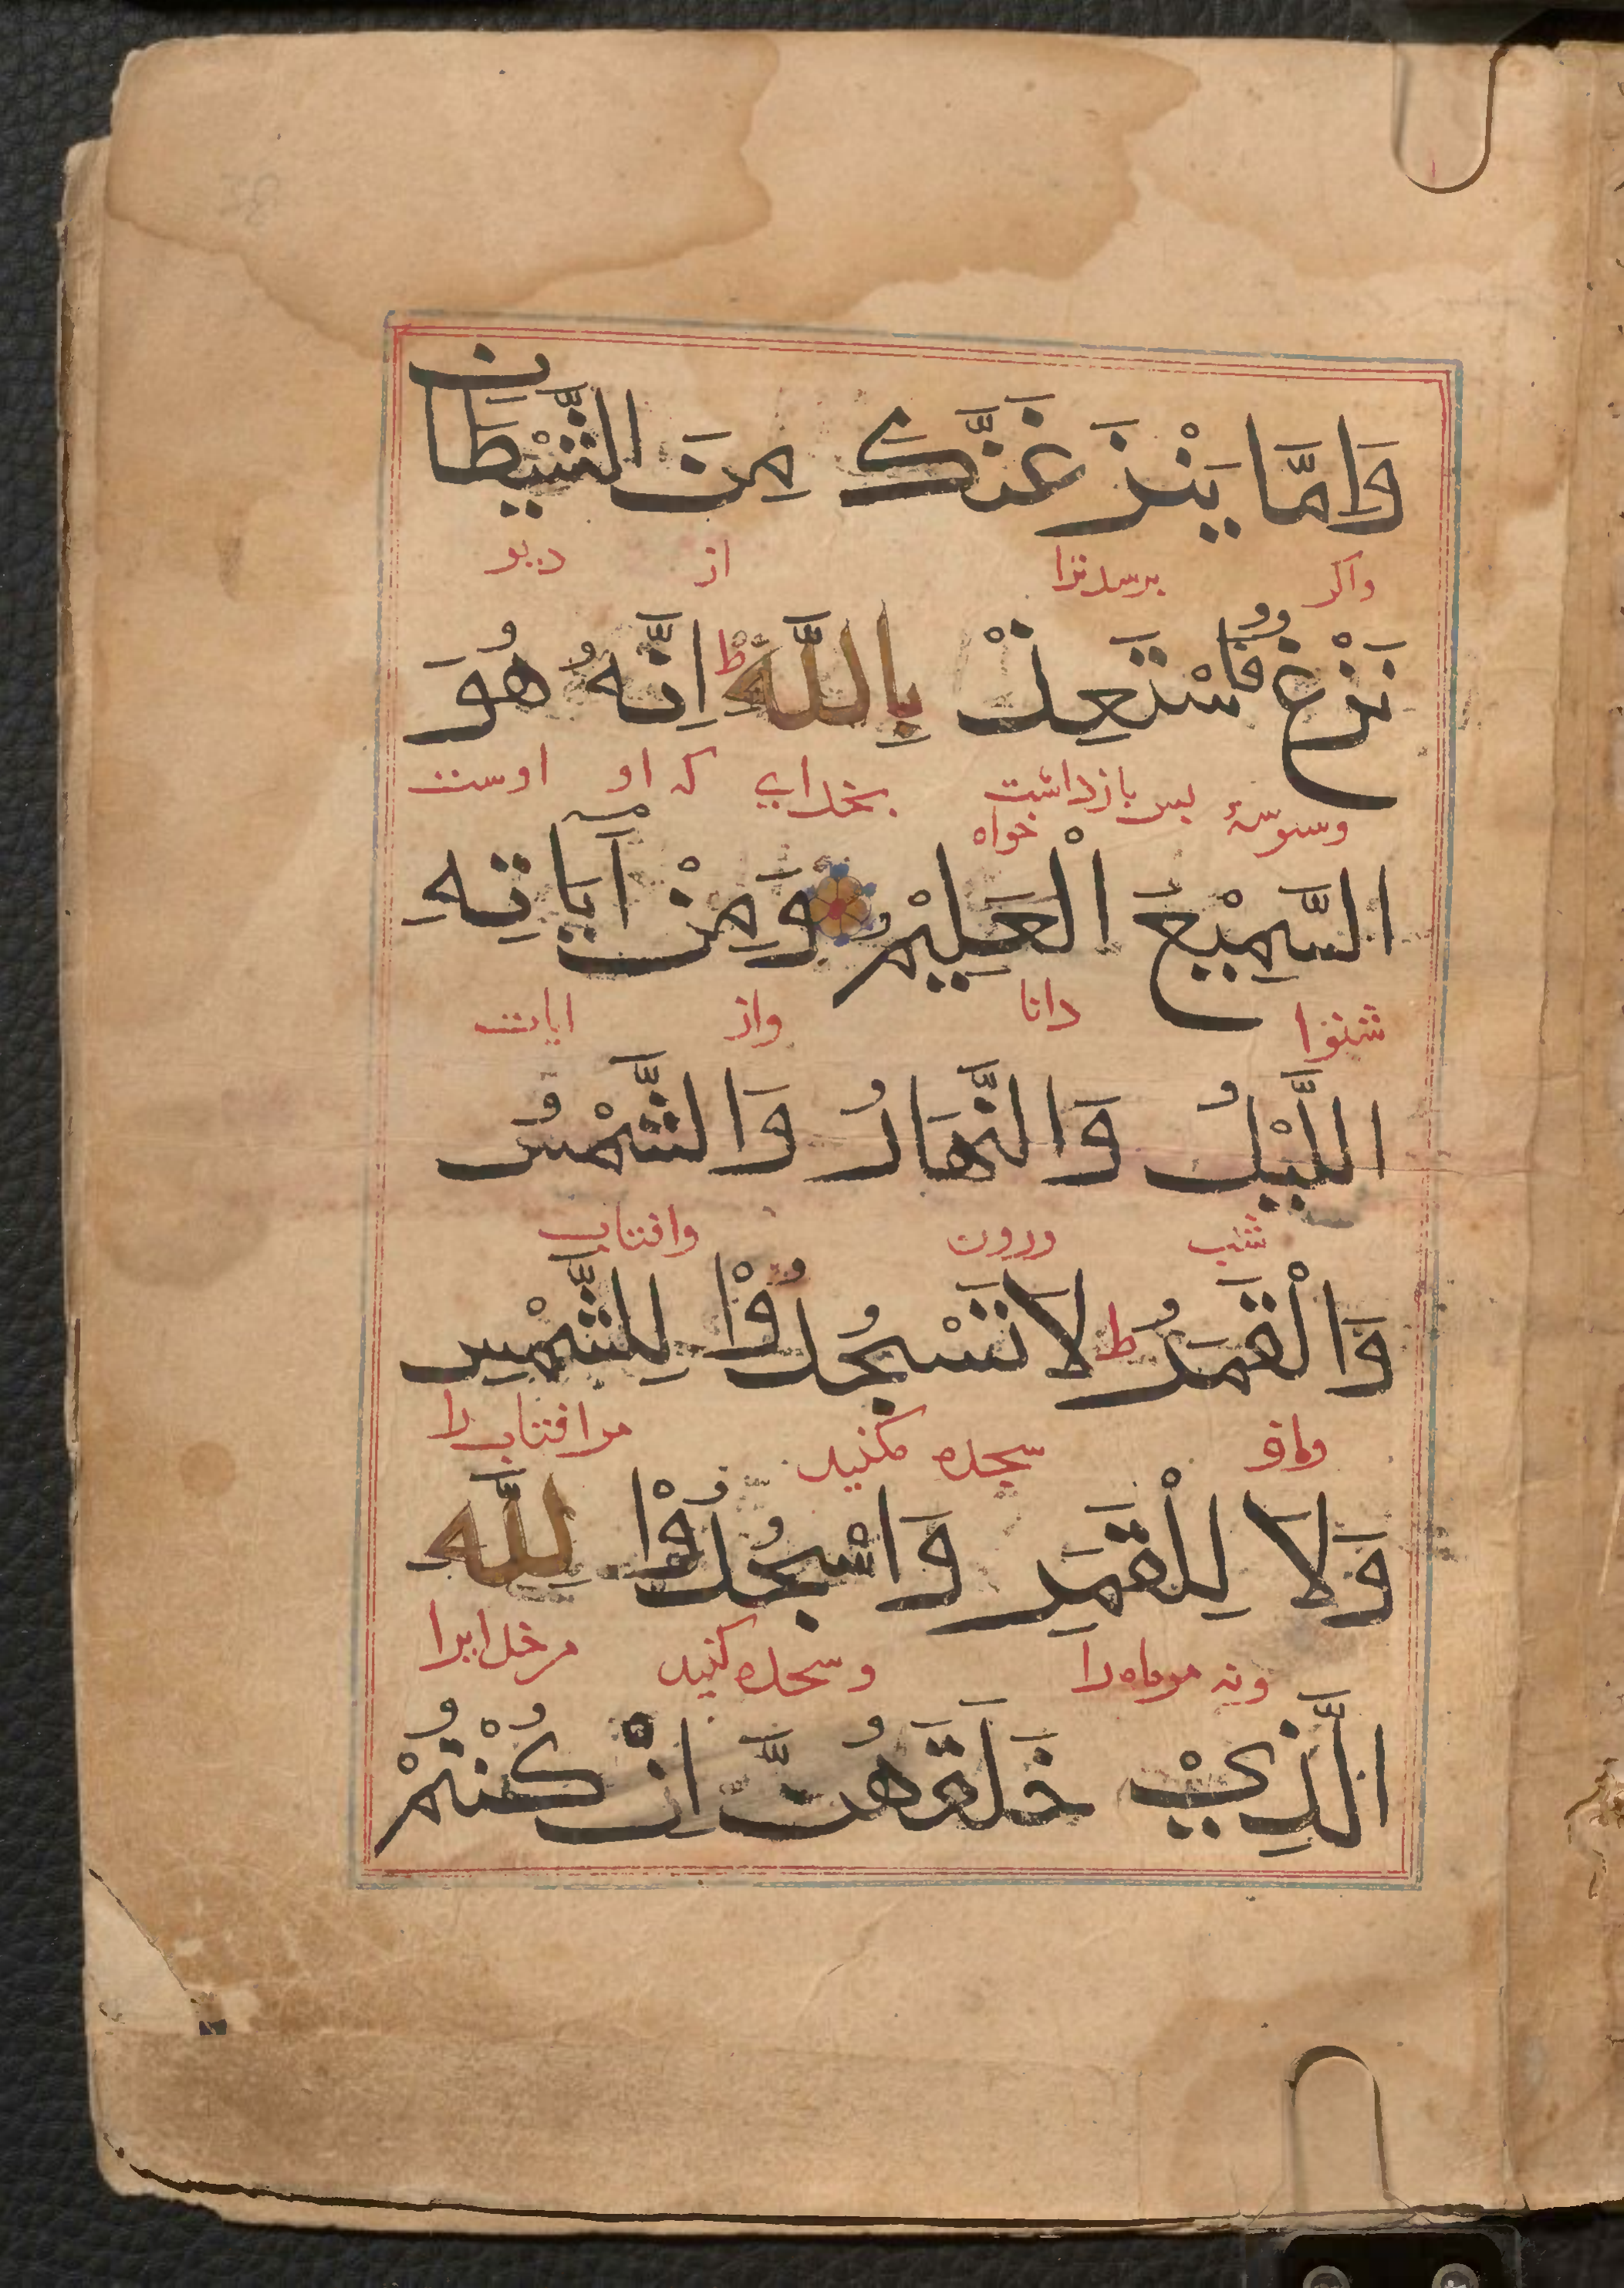 وَاِمَّا يَنْزَغَنَّكَ مِنَ الشَّيْطَانِ
واكر برسد ترا از ديو
نَزْغٌ فَاسْتَعِذْ بِاللَّهِ ط اِنَّهُ هُوَ
وسوسهٔ پس بازداشت خواه بخداي كه او اوست
السَّمِيْعُ الْعَلِيْمُ وَمِنْ آيَاتِهِ
شنوا دانا واز ايات
اللَّيْلُ وَالنَّهَارُ وَالشَّمْسُ
شب وروز وافتاب
وَالْقَمَرُ ط لَا تَسْجُدُوْا لِلشَّمْسِ
سجده مكنيد مر افتاب را
وَلَا لِلْقَمَرِ وَاسْجُدُوْا لِلَّهِ
ونه مر ماه را وسجده كنيد مر خدايرا
الَّذِيْ خَلَقَهُنَّ اِنْ كُنْتُمْ